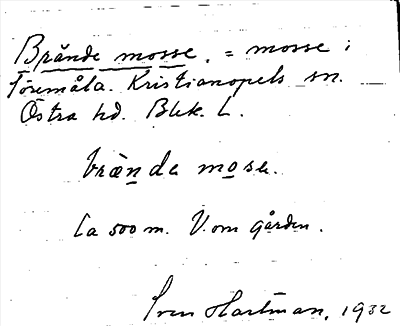 Brände mosse. = mosse i
Töremåla. Kristianopels sn.
Östra hd. Blek. L.
brän̲da mo̲se.
Ca 500 m. V. om gården.
Sven Hartman, 1932